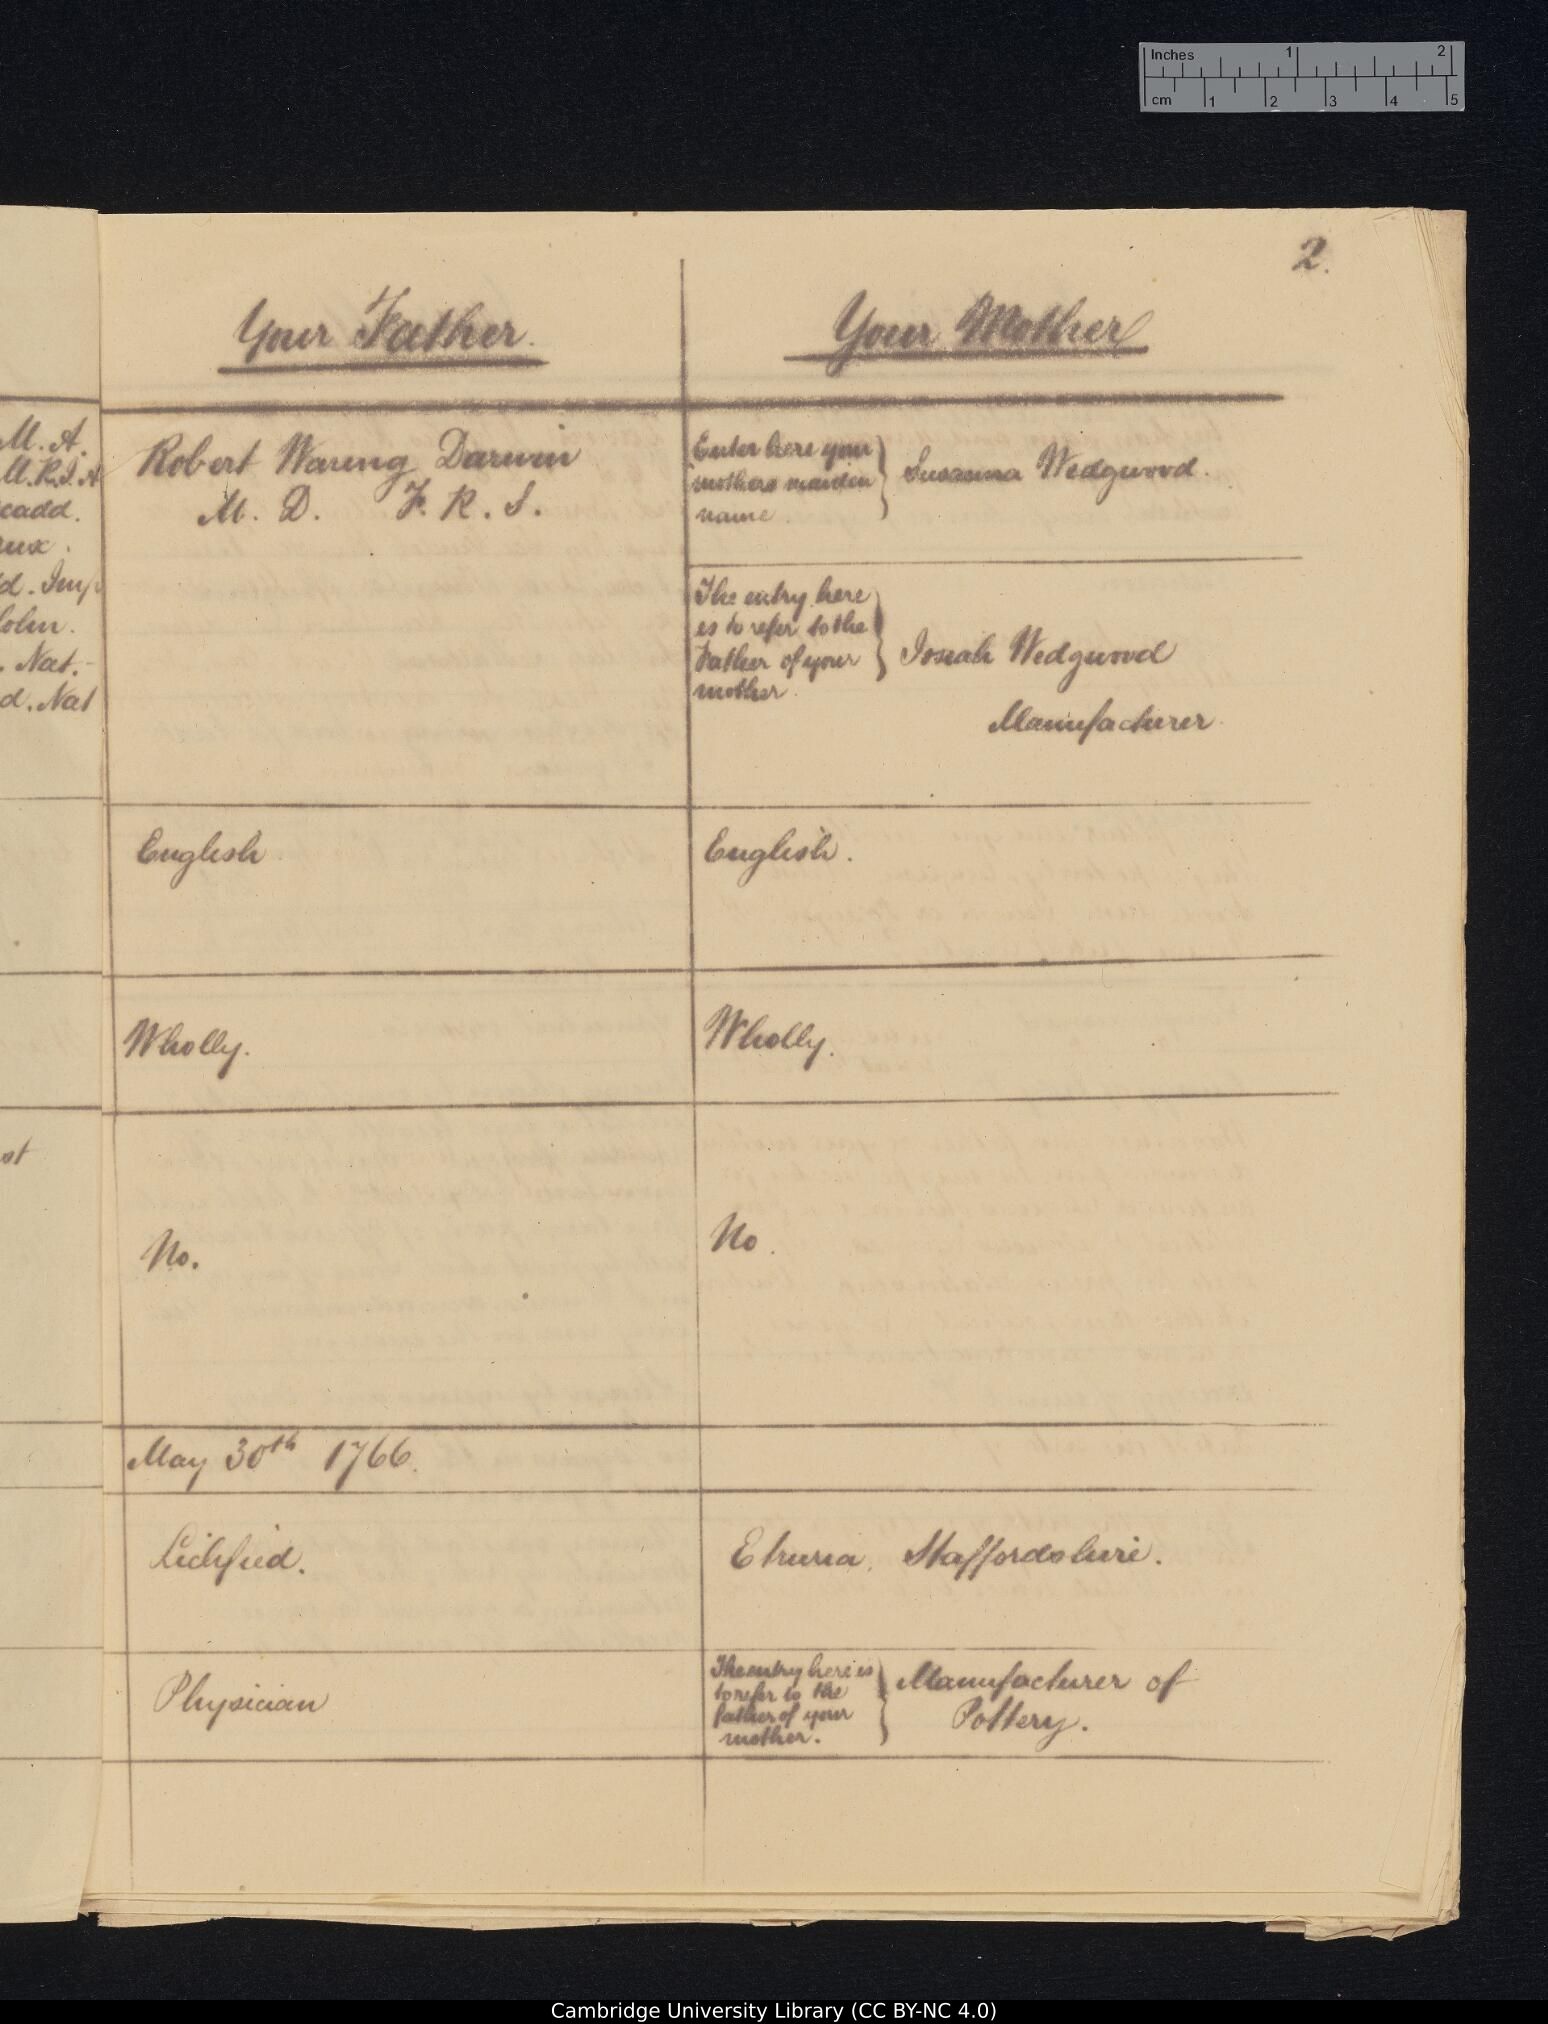 Inches 1 2
cm 1 2 3 4 5
2.
Your Father.
Your Mother
M. A.
M.R.I.A
cadd.
d. Imp
Holm.
. Nat.-
d. Nat
st
Robert Waring Darwin
M. D. F. R. S.
Enter here your
mothers maiden
name
Susanna Wedgwood.
The entry here
is to refer to the
Father of your
mother.
Josiah Wedgwood
Manufacturer.
English
English.
Wholly.
Wholly.
No.
No.
May 30th 1766.
Lichfied.
Etruria, Staffordshire.
Physician
The entry here is
to refer to the
father of your
mother.
Manufacturer of
Pottery.
Cambridge University Library (CC BY-NC 4.0)